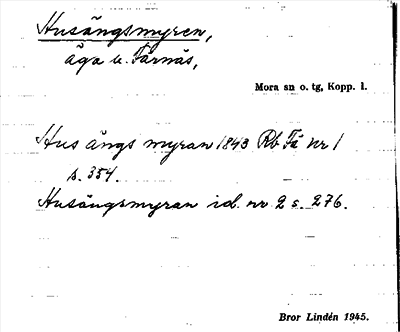 Husängsmyren,
äga u. Färnäs,
Mora sn o. tg, Kopp. l.
Hus ängs myran 1843 Rb Fä nr 1
s. 354.
Husängsmyran id. nr 2 s. 276.
Bror Lindén 1945.